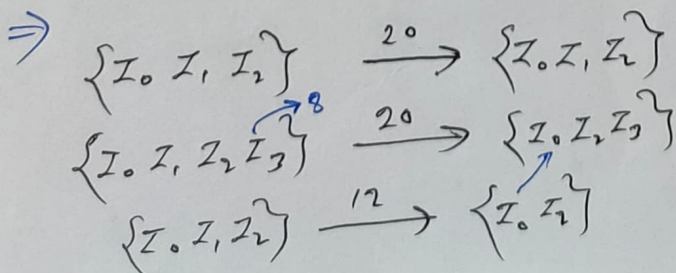 ⇒ {I₀ I₁ I₂} 20→ {I₀ I₁ I₂}
{I₀ I₁ I₂ I₃} →8 20→ {I₀ I₂ I₃}
{I₀ I₁ I₂} 12→ {I₀ I₂}